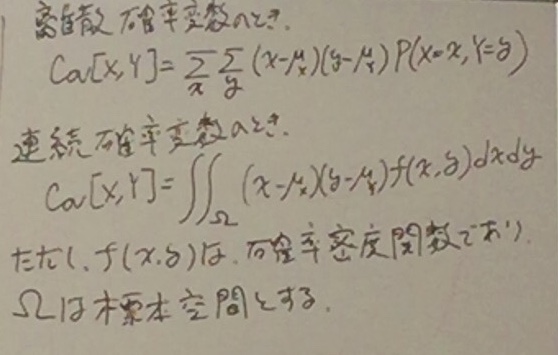 離散確率変数のとき.
Cov[X,Y]=∑_x ∑_y (x-μ_x)(y-μ_Y)P(X=x,Y=y)
連続確率変数のとき.
Cov[X,Y]=∬_Ω (x-μ_x)(y-μ_Y)f(x,y)dxdy
ただし、f(x,y)は、確率密度関数であり.
Ωは標本空間とする.